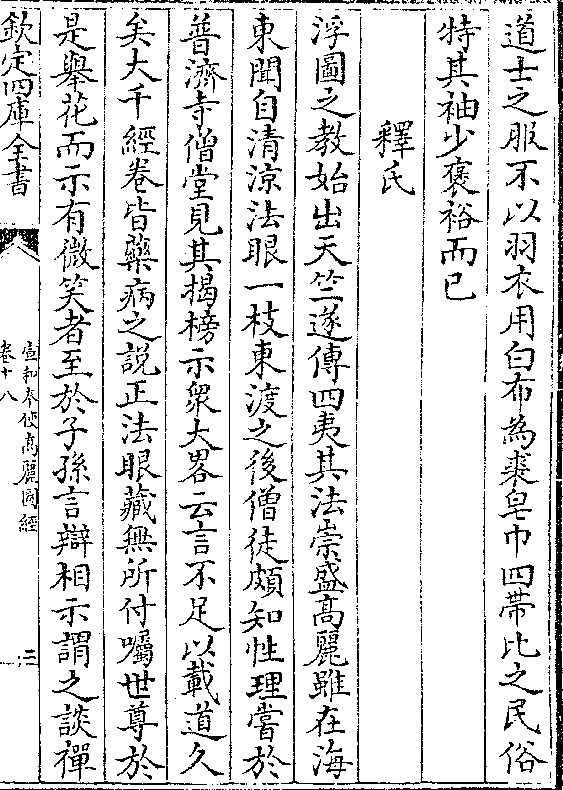 道士之服不以羽衣用白布為裘皂巾四帶比之民俗
特其袖少褒裕而已
釋氏
浮圖之教始出天竺遂傳四夷其法崇盛高麗雖在海
東聞自清涼法眼一枝東渡之後僧徒頗知性理嘗於
普濟寺僧堂見其揭榜示衆大畧云言不足以載道久
矣大千經卷皆藥病之說正法眼藏無所付囑世尊於
是舉花而示有微笑者至於子孫言辯相示謂之談禪
欽定四庫全書
宣和奉使高麗圖經
卷十八
三